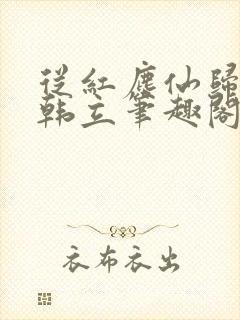 從紅塵仙歸
韩立筆趣閣
衣布衣出